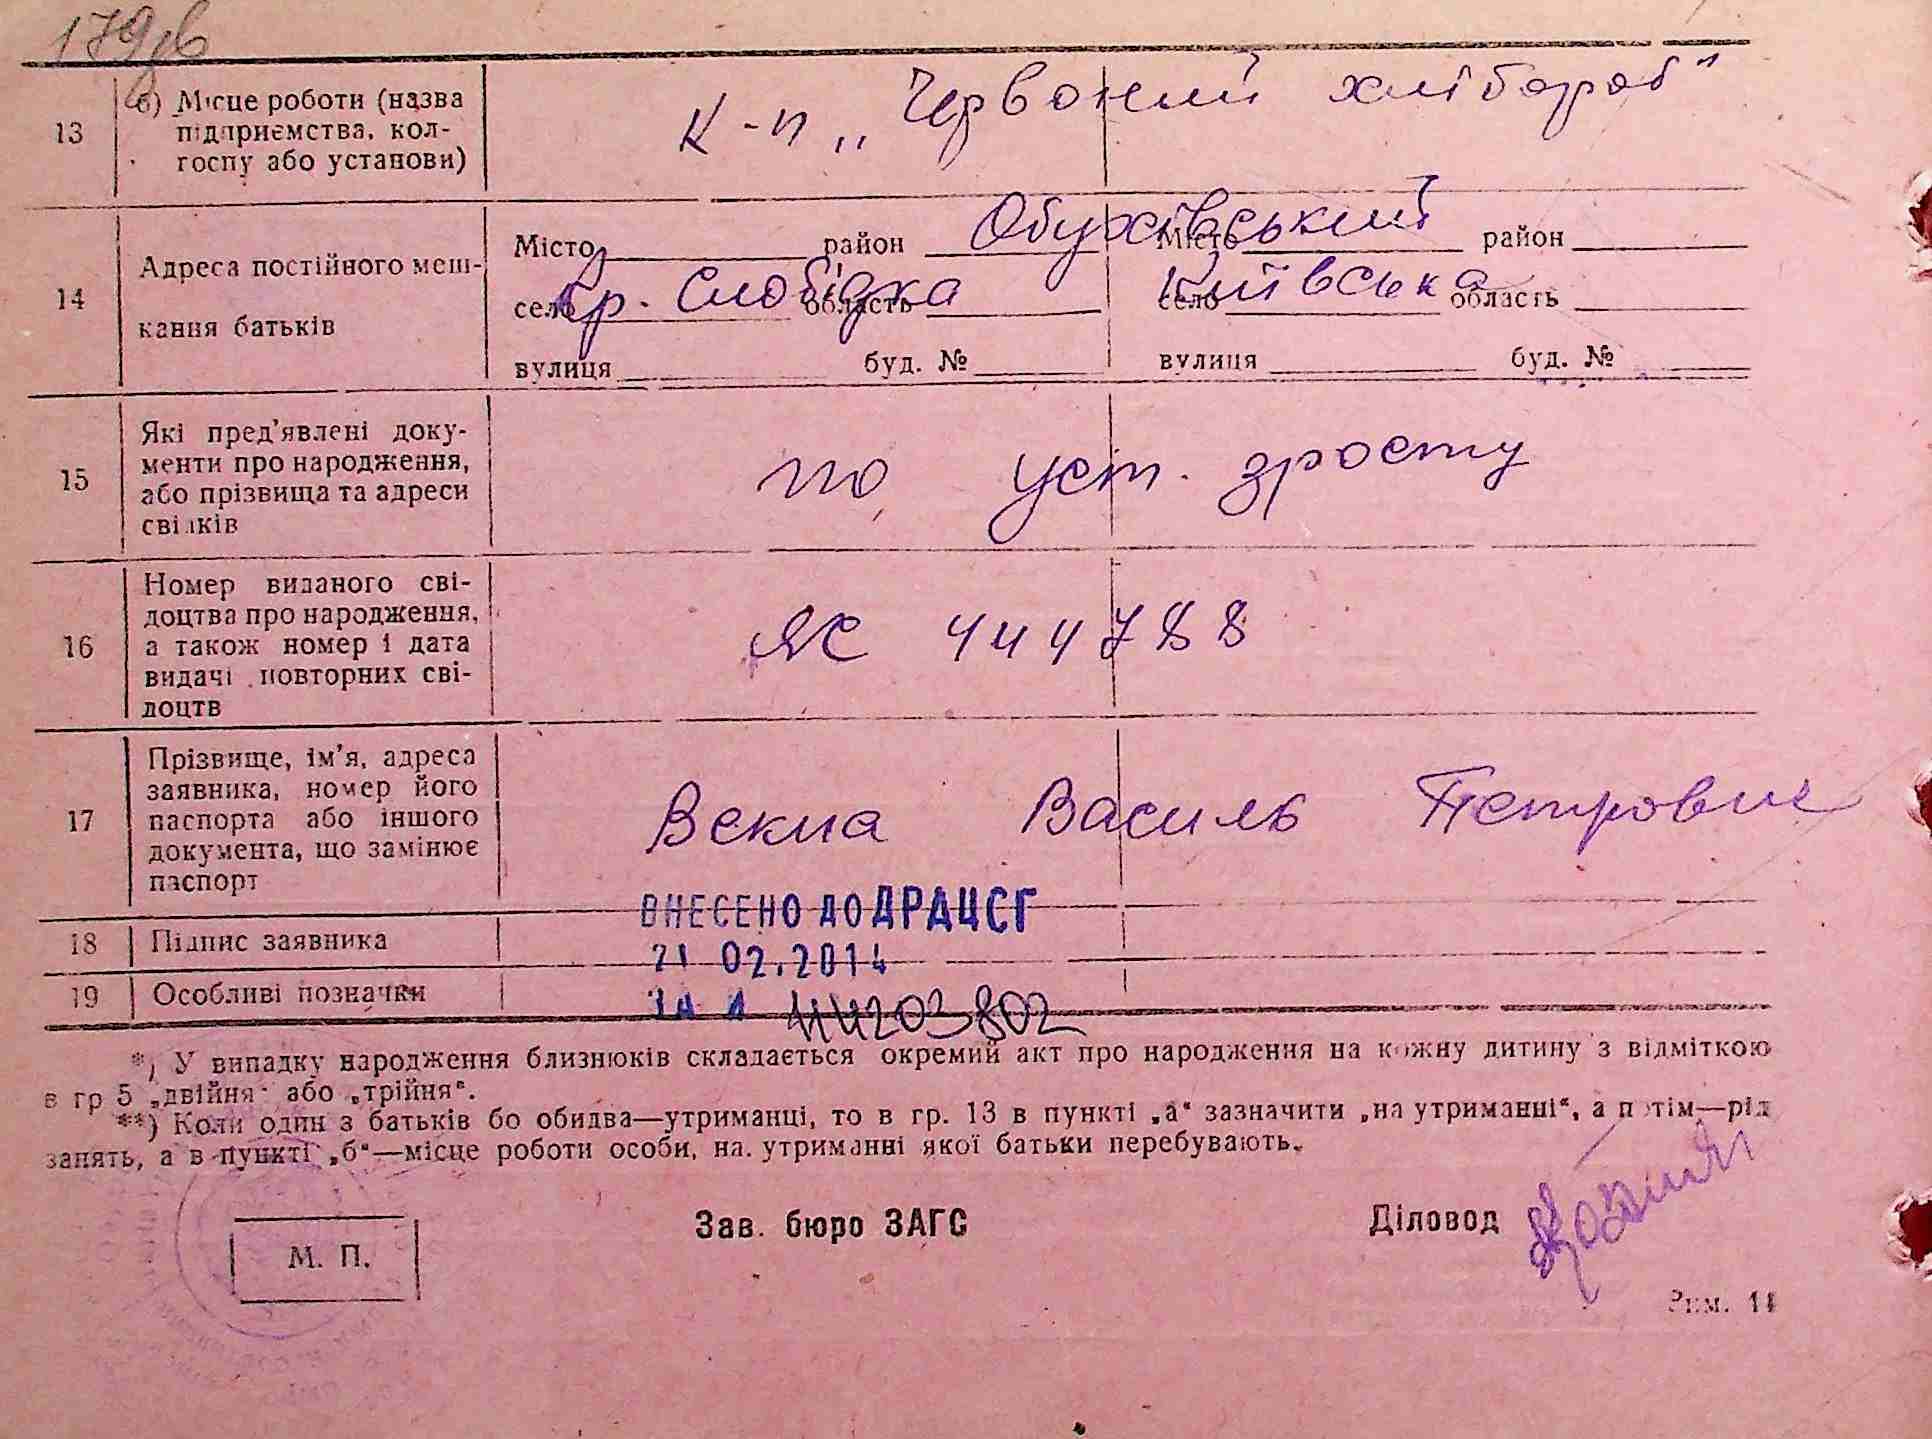 179зв
13 б) Місце роботи (назва
підприємства, кол-
госпу або установи)
К-п „Червоний хлібороб"
14 Адреса постійного меш-
кання батьків
Місто район Обухівський Місто район
село Кр. Слобідка область село Київська область
вулиця буд. № вулиця буд. №
15 Які пред'явлені доку-
менти про народження,
або прізвища та адреси
свідків
по уст. зросту
16 Номер виданого сві-
доцтва про народження,
а також номер і дата
видачі повторних сві-
доцтв
ЯС 444788
17 Прізвище, ім'я, адреса
заявника, номер його
паспорта або іншого
документа, що замінює
паспорт
Векла Василь Петрович
ВНЕСЕНО ДО ДРАЦСГ
18 Підпис заявника
21 02.2014
19 Особливі позначки
ЗА №
*) У випадку народження близнюків складається окремий акт про народження на кожну дитину з відміткою
в гр 5 „двійня" або „трійня".
**) Коли один з батьків бо обидва—утриманці, то в гр. 13 в пункті „а" зазначити „на утриманні", а потім—рід
занять, а в пункті „б"—місце роботи особи, на. утриманні якої батьки перебувають.
М. П.
Зав. бюро ЗАГС
Діловод
Рим. 11